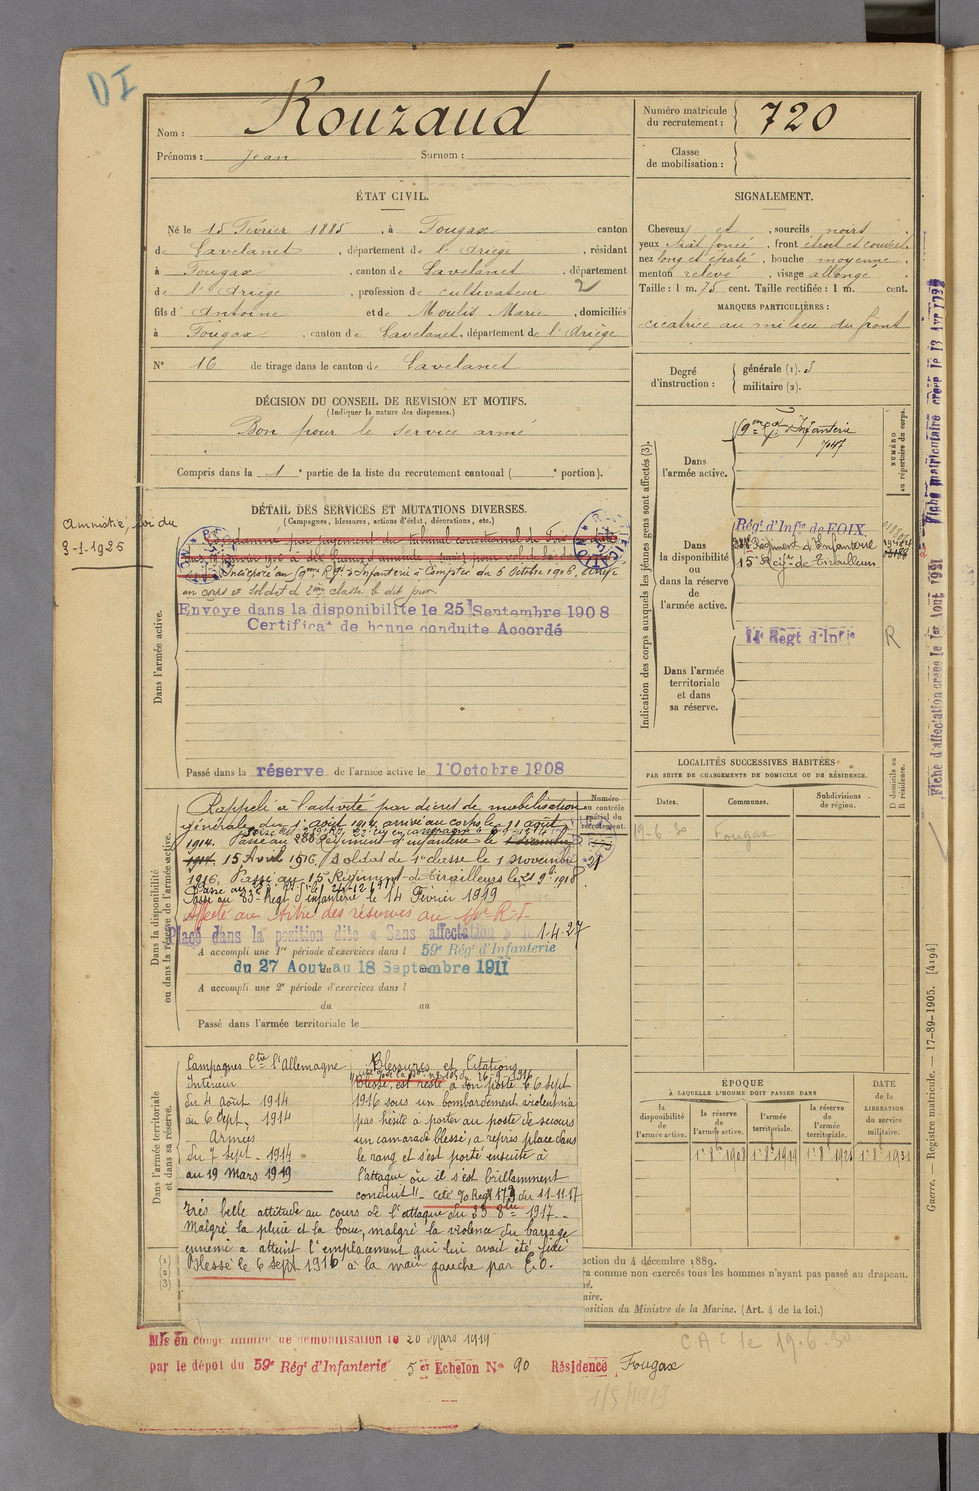 DI
Nom : Rouzaud
Prénoms : Jean Surnom :
Numéro matricule du recrutement : 720
Classe de mobilisation :
ÉTAT CIVIL.
Né le 15 Février 1885, à Fougax canton
de Lavelanet, département de l'Ariège, résidant
à Fougax, canton de Lavelanet, département
de l'Ariège, profession de cultivateur 2
fils d' Antoine et de Moulis Marie, domiciliés
à Fougax canton de Lavelanet, département de l'Ariège
N° 16 de tirage dans le canton de Lavelanet
SIGNALEMENT.
Cheveux et, sourcils noirs
yeux chat. foncé, front étroit et couvert
nez long et épaté, bouche moyenne
menton relevé, visage allongé
Taille : 1 m. 75 cent. Taille rectifiée : 1 m. cent.
MARQUES PARTICULIÈRES :
cicatrice au milieu du front
Degré d'instruction : générale (1). 3
militaire (2).
DÉCISION DU CONSEIL DE REVISION ET MOTIFS.
(Indiquer la nature des dispenses.)
Bon pour le service armé
Compris dans la 1 e partie de la liste du recrutement cantonal ( e portion).
DÉTAIL DES SERVICES ET MUTATIONS DIVERSES.
(Campagnes, blessures, actions d'éclat, décorations, etc.)
Amnistié, loi du
3-1-1925
Dans l'armée active.
Condamné par jugement du tribunal correctionnel de Foix
Incorporé au 59me Rgt d'Infanterie à Compter du 6 Octobre 1906, arrivé
au corps et soldat de 2me classe le dit jour.
Envoyé dans la disponibilité le 25 Septembre 1908
Certificat de bonne conduite Accordé
Passé dans la réserve de l'armée active le 1 Octobre 1908
Indication des corps auxquels les jeunes gens sont affectés (3).
NUMÉRO au répertoire du corps.
Dans l'armée active.
59me Rgt d'Infanterie
7047
Dans la disponibilité ou dans la réserve de l'armée active.
Régt d'Infie de FOIX.
Régiment d'Infanterie
15e Regt de Tirailleurs
Dans l'armée territoriale et dans sa réserve.
14e Régt d'Infie
R
Dans la disponibilité ou dans la réserve de l'armée active.
Numéro au contrôle spécial du recrutement.
Rappelé à l'activité par décret de mobilisation
générale du 1er août 1914, arrivé au corps le 11 août
1914. Passé au Régiment d'infanterie le
1914. 15 Avril 1916. Soldat de 1re classe le 1 novembre
1916. Passé au 15e Régiment de Tirailleurs le 21 9bre 1918
Passé au 83e Régt d'infanterie le 14 Février 1919
Affecté au titre des réserves au R.I.
Placé dans la position dite « Sans affectation » le 1-4-27
A accompli une 1re période d'exercices dans l 59e Régt d'Infanterie
du 27 Aout au 18 Septembre 1911
A accompli une 2e période d'exercices dans l
du au
Passé dans l'armée territoriale le
LOCALITÉS SUCCESSIVES HABITÉES
PAR SUITE DE CHANGEMENTS DE DOMICILE OU DE RÉSIDENCE.
Dates. Communes. Subdivisions de région. D domicile ou R résidence.
19-6-30 Fougax
Dans l'armée territoriale et dans sa réserve.
Campagnes Ctre l'Allemagne
Intérieur
du 4 aout 1914
au 6 Sept. 1914
Armées
du 7 sept. 1914
au 19 Mars 1919
Blessures et Citations
"Blessé, est resté à son poste le 6 sept
1916 sous un bombardement violent n'a
pas hésité à porter au poste de secours
un camarade blessé, a repris place dans
le rang et s'est porté ensuite à
l'attaque où il s'est brillamment
conduit" - Cité O/ Regt 179 du 11-11-17
très belle attitude au cours de l'attaque du 23 8bre 1917
Malgré la pluie et la boue, malgré la violence du barrage
ennemi a atteint l'emplacement qui lui avait été fixé
Blessé le 6 sept. 1916 à la main gauche par E.O.
(1)
(2)
(3)
ÉPOQUE
À LAQUELLE L'HOMME DOIT PASSER DANS
la disponibilité de l'armée active.
la réserve de l'armée active.
l'armée territoriale.
la réserve de l'armée territoriale.
DATE de la LIBÉRATION du service militaire.
1er 8bre 1908 1er 8bre 1919 1er 8bre 1925 1er 8bre 1931
ction du 4 décembre 1889.
ra comme non exercés tous les hommes n'ayant pas passé au drapeau.
né.
aire.
position du Ministre de la Marine. (Art. 4 de la loi.)
Mis en congé illimité de démobilisation le 20 Mars 1919
par le dépôt du 59e Régt d'Infanterie 5er Echelon No 90 Résidence Fougax
C.A.C le 19.6.30
Fiche d'affectation créée le 1er Aout 1921
Fiche matriculaire créée le 13 Avr 1932
Guerre. — Registre matricule. — 17-89-1905. [4194]